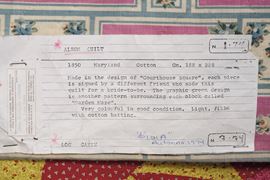 N 1-720
ALBUM QUILT
1850 Maryland Cotton Cm. 188 x 228
Made in the design of "Courthouse Square", each piece
is signed by a different friend who made this
quilt for a bride-to-be. The graphic green design
is another pattern surrounding each block called
"Garden Maze".
Very colourful in good condition, light, filled
with cotton batting.
"LULA"
LOU CASEY
N